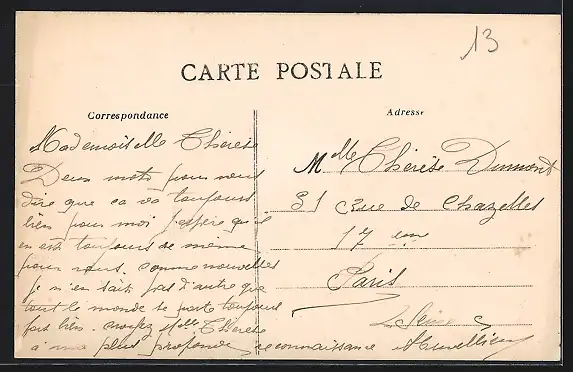 13
CARTE POSTALE
Correspondance
Adresse
Mademoiselle Thérèse
Deux mots pour vous
dire que ça va toujours
bien pour moi j'espère qu'il
en est toujours de même
pour vous. comme nouvelles
je n'en sais pas d'autre que
tout le monde se porte toujours
fort bien. croyez Mlle Thérèse
à ma plus profonde reconnaissance
Mlle Thérèse Dumont
51 Rue de Chazelles
17 eme
Paris
Seine